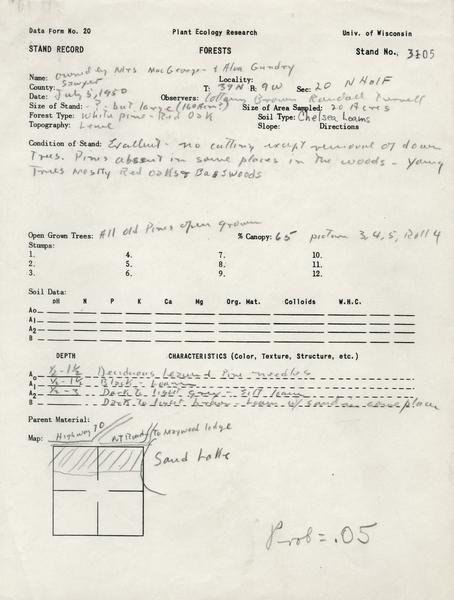 Data Form No. 20 Plant Ecology Research Univ. of Wisconsin
STAND RECORD FORESTS Stand No. 3105
Name: owned by Mrs MacGregor + Alva Gundry
Locality:
County: Sawyer T: 39N R 9W Sec: 20 N Half
Date: July 5, 1950 Observers: Cottam Brown Randall
Size of Stand: - ? - but large (160A or?) Size of Area Sampled: 20 Acres
Forest Type: White pine - Red Oak Soil Type: Chelsea Loams
Topography: Level Slope: Directions
Condition of Stand: Excellent - no cutting except removal of down
Trees. Pines absent in some places in the woods - Young
Trees mostly Red oaks & Basswoods
Open Grown Trees: All old Pines open grown % Canopy: 65 picture 3, 4, 5, Roll 4
Stumps:
1. 4. 7. 10.
2. 5. 8. 11.
3. 6. 9. 12.
Soil Data:
pH N P K Ca Mg Org. Mat. Colloids W.H.C.
Ao
A1
A2
B
DEPTH CHARACTERISTICS (Color, Texture, Structure, etc.)
Ao ½ - 1½ Deciduous Leaves and Pine needles
A1 ½ - 1½ Black - Loam
A2 ½ - 3 Dark to light gray - silt loam
B Dark to light brown - Loam w/ sand in some places
Parent Material:
Map: Highway 70 to Maywood lodge
Sand Lake
Prob = .05